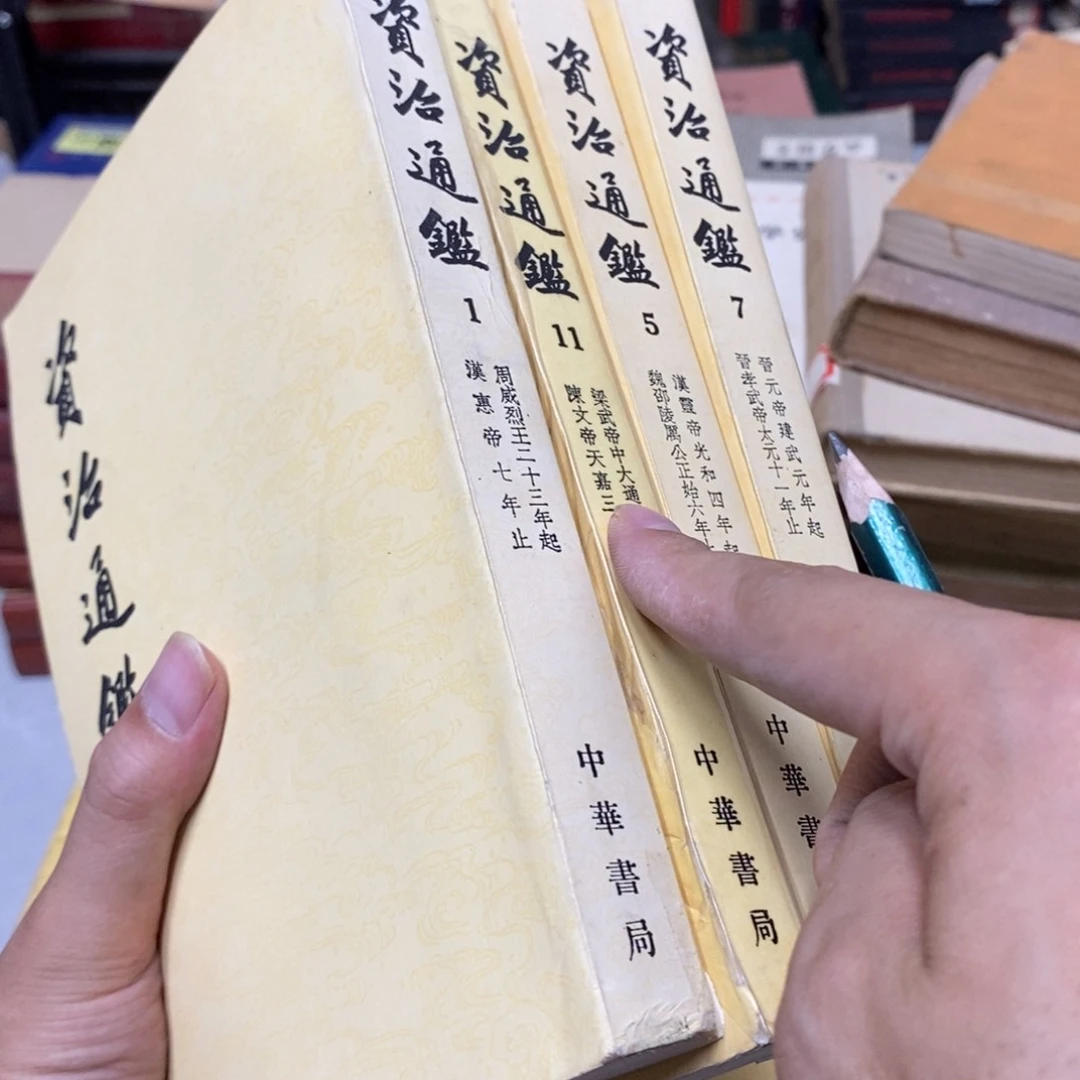 資治通鑑
資治通鑑
1
周威烈王二十三年起
漢惠帝七年止
中華書局
資治通鑑
11
梁武帝中大通
陳文帝天嘉三
中華書局
資治通鑑
5
漢靈帝光和四年起
魏邵陵厲公正始六年
中華書
資治通鑑
7
晉元帝建武元年起
晉孝武帝太元十一年止